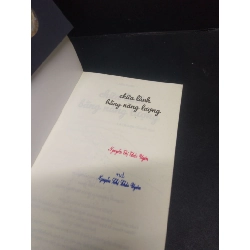 chữa lành
bằng năng lượng
Nguyễn Thị Thảo Ngân
Nguyễn Thị Thảo Ngân